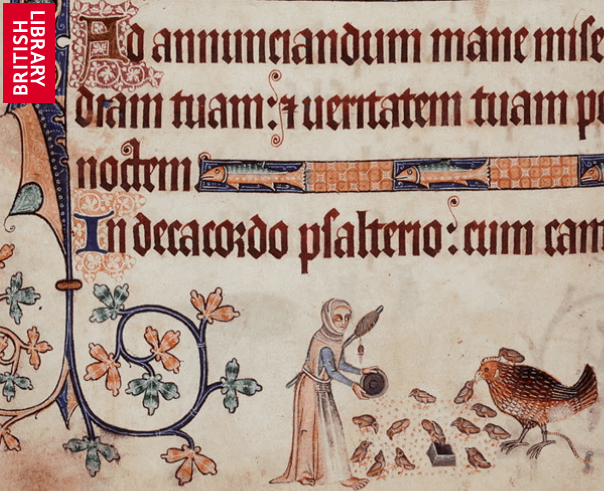 BRITISH
LIBRARY
Ad annunciandum mane mise
diam tuam: ⁊ ueritatem tuam pe
noctem
In decacordo psalterio: cum can